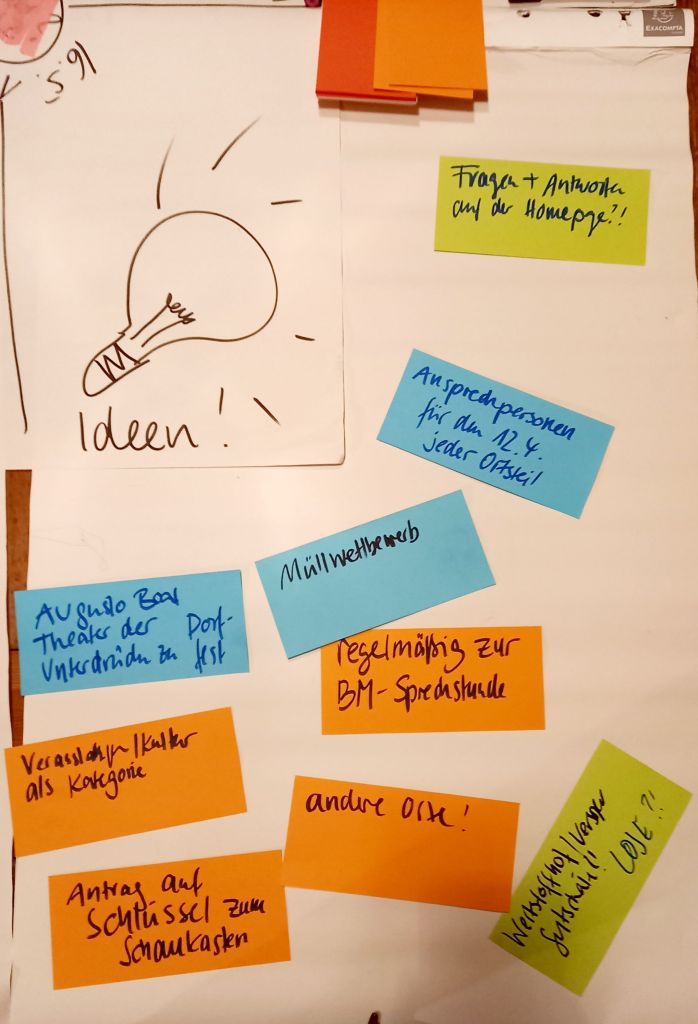 EXACOMPTA
16.5.
Ideen!
Fragen + Antworten
auf der Homepge?!
Ansprechpersonen
für den 12.4.
jeder Ortsteil
Müllwettbewerb
Augusto Boal
Theater der Dorf-
Unterdrückten fest
regelmäßig zur
BM-Sprechstunde
als Kategorie
andere Orte!
Antrag auf
Schlüssel zum
Schaukasten
Wertstoffhof/
LOSE?!